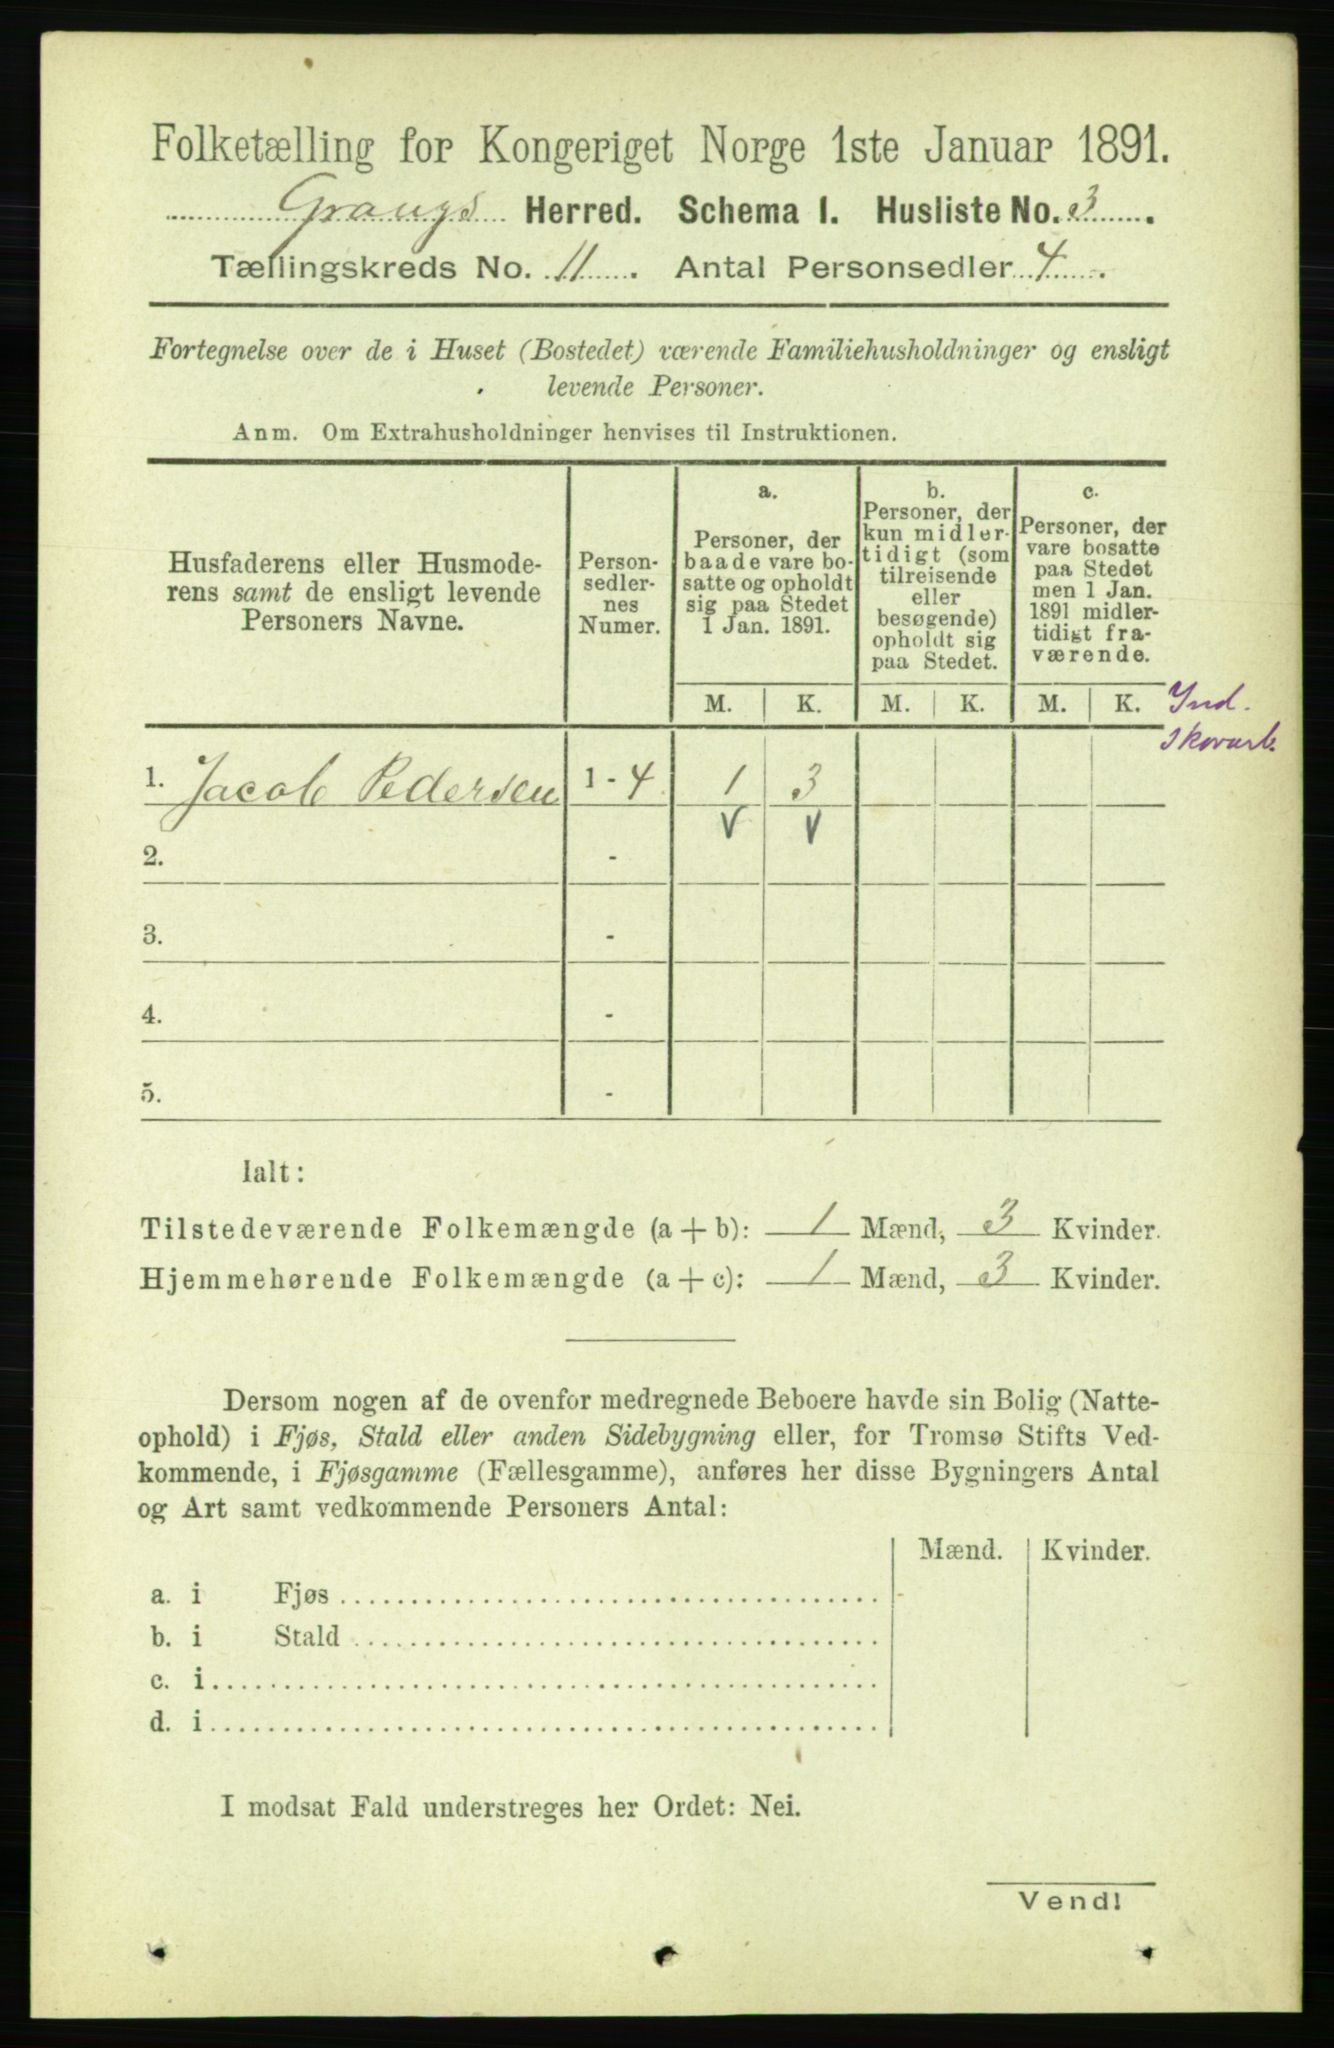 Folketælling for Kongeriget Norge 1ste Januar 1891.
Herred. Schema I. Husliste No. 3.
Tællingskreds No. 11. Antal Personsedler 4.
Fortegnelse over de i Huset (Bostedet) værende Familiehusholdninger og ensligt
levende Personer.
Anm. Om Extrahusholdninger henvises til Instruktionen.
Husfaderens eller Husmode-
rens samt de ensligt levende
Personers Navne.
Person-
sedler-
nes
Numer.
a.
Personer, der
baade vare bo-
satte og opholdt
sig paa Stedet
1 Jan. 1891.
b.
Personer, der
kun midler-
tidigt (som
tilreisende
eller
besøgende)
opholdt sig
paa Stedet.
c.
Personer, der
vare bosatte
paa Stedet
men 1 Jan.
1891 midler-
tidigt fra-
værende.
M. K. M. K. M. K. Ind.
Skovarb.
1. Jacob Pedersen 1 - 4 1 3
2. -
3. -
4. -
5. -
Ialt:
Tilstedeværende Folkemængde (a + b): 1 Mænd, 3 Kvinder.
Hjemmehørende Folkemængde (a + c): 1 Mænd, 3 Kvinder.
Dersom nogen af de ovenfor medregnede Beboere havde sin Bolig (Natte-
ophold) i Fjøs, Stald eller anden Sidebygning eller, for Tromsø Stifts Ved-
kommende, i Fjøsgamme (Fællesgamme), anføres her disse Bygningers Antal
og Art samt vedkommende Personers Antal:
Mænd. Kvinder.
a. i Fjøs
b. i Stald
c. i
d. i
I modsat Fald understreges her Ordet: Nei.
Vend!